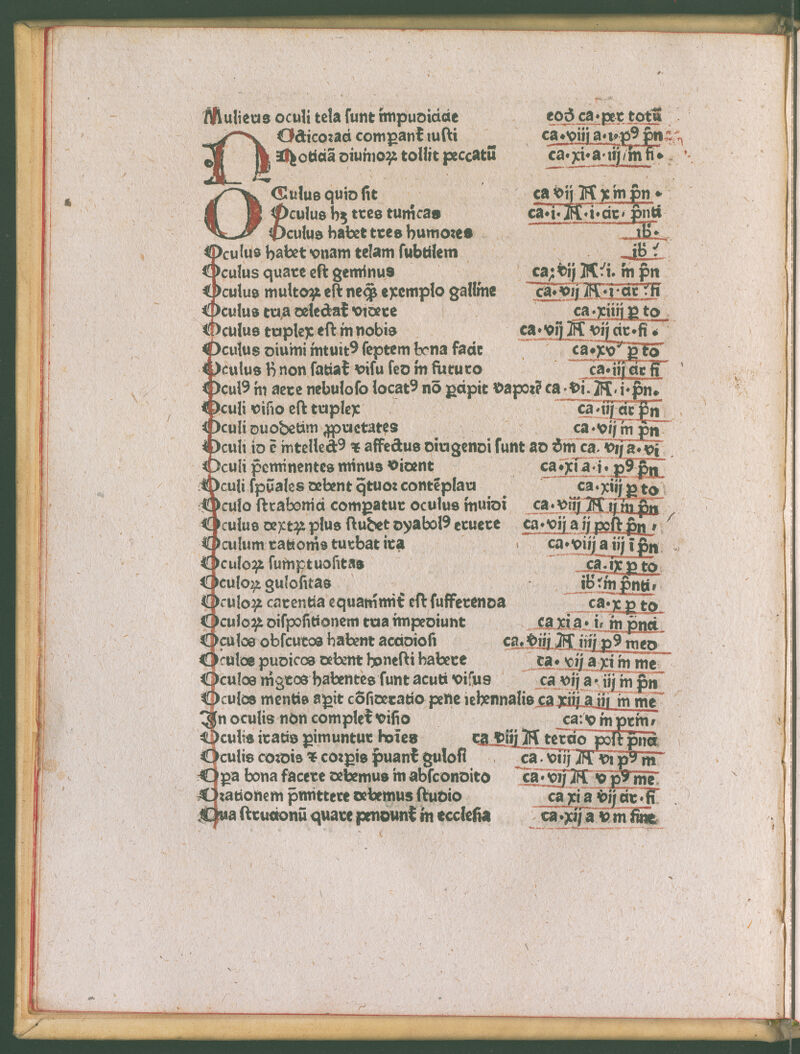 Mulieris oculi tela sunt impudicicie eod̄ ca·per totū
NOdicorax comparāt iusti ca·viij a·v·p⁹ pn̄
Noticiā diuinoꝝ tollit peccatū ca·xi·a·iij/in fi·
OCulus quid sit ca vij M x in pn̄·
Oculus hꝫ tres tunicas ca·i·M·i·circ· pnci
Oculus habet tres humores ib·
Oculus habet vnam telam subtilem ib
Oculus quare est geminus ca: vij M i. in pn̄
Oculus multoꝝ est neqᷓꝫ exemplo galline ca·vij M·i·circ fi
Oculus tria delectat̄ videre ca·xiiij ꝑ to
Oculus triplex est in nobis ca·vij M vij circ·fi·
Oculus diuini intuit⁹ septem bona facit ca·xv ꝑ to
Oculus hi non satiat̄ visu sed in futuro ca·iij circ fi
Ocul⁹ in aere nebuloso locat⁹ nō ꝑcipit vapore ca·vi. M·i·pn̄.
Oculi visio est triplex ca·iij circ pn̄
Oculi duodecim ꝓprietates ca·vij in pn̄
Oculi id ē intellect⁹ ⁊ affectus dirigendi sunt ad dm̄ ca. vij a·vi
Oculi p̄eminentes minus vident ca·xi a·i·p⁹ pn̄
Oculi spūales debent qͣtuor contēplari ca·xiij ꝑ to
Oculo straboni comꝑatur oculus inuidi ca·viij M ij in pn̄
Oculus dextꝝ plus studet dyabol⁹ eruere ca·vij a ij post pn̄
Oculum rationis turbat ira ca·viij a iij ī pn̄
Oculoꝝ sumptuositas ca·ix ꝑ to
Oculoꝝ gulositas ib in pn̄ci·
Oculoꝝ carentia equanimit̄ est sufferenda ca·x ꝑ to
Oculoꝝ dispositionem tria impediunt ca xi a·i· in pn̄ci
Oculos obscuros habent accidiosi ca. viij M iiij p⁹ med
Oculos pudicos debent honesti habere ca· vij a xi in me
Oculos nigros habentes sunt acuti visus ca vij a· iij in pn̄
Oculos mentis aꝑit cōsideratio pene iehennalis ca xiij a iij in me
In oculis non complet̄ visio ca: v in prin·
Oculis iratis ꝑimuntur hoīes ca viij M tercio post pn̄ci
Oculis cordis ⁊ corꝑis p̄uant̄ gulosi ca·viij M vi p⁹ m
Opa bona facere debemus in abscondito ca·vij M v p⁹ me
Orationem p̄mittere debemus studio ca xi a vij circ·fi
Oua strucionū quare pendunt̄ in ecclesia ca·xij a v in fine